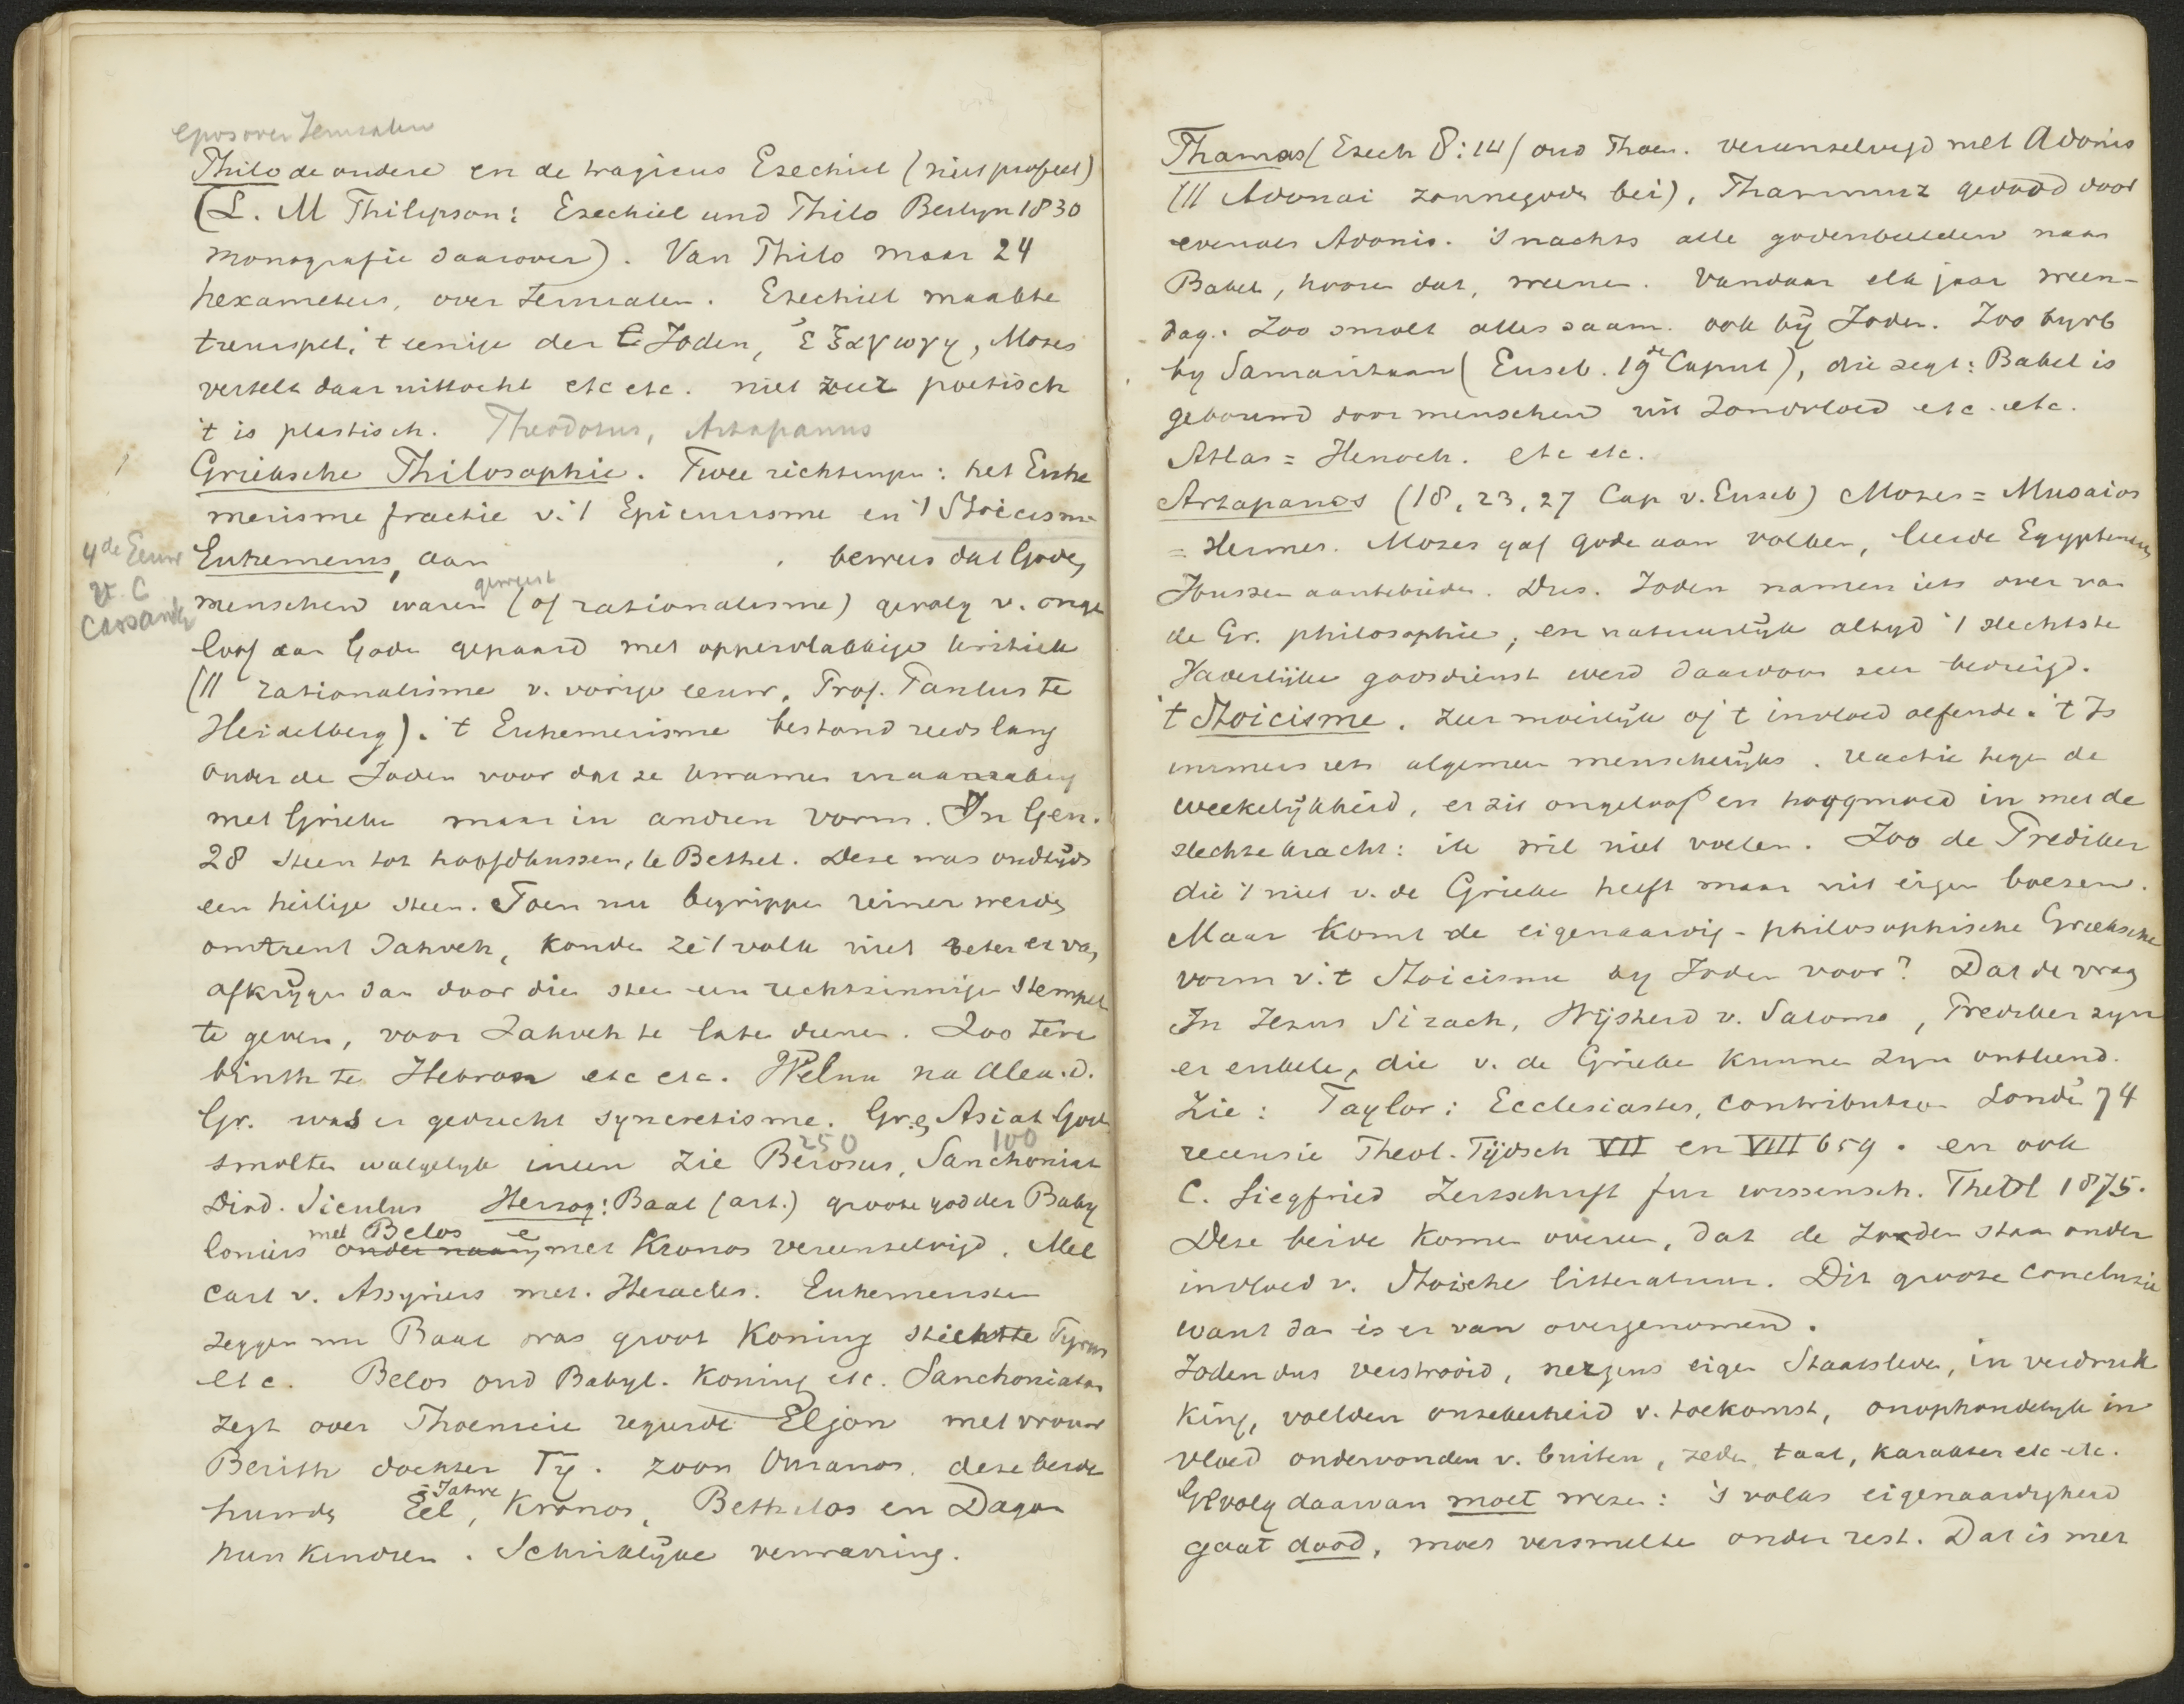 epos over Jerusalem
Philo de oudere en de tragicus Ezechiel (niet profeet)
(L. M Philipson: Ezechiel und Philo Berlyn 1830
monografie daarover). Van Philo maar 24
hexameters, over Jerusalem. Ezechiel maakte
treurspel, 't eenige der Joden, ἐξαγωγη, Mozes
vertelt daar uittocht etc etc. niet zeer poetisch
't is plastisch. Theodotus, Artapanus
Grieksche Philosophie. Twee richtingen: het Euhe
merisme fractie v. 't Epicurisme en 't Stoicisme
4de Eeuw v. C Cassander
Euhemerus, aan bewees dat Goden
menschen waren geweest (of rationalisme) gevolg v. onge
loof aan Goden gepaard met oppervlakkige kritiek
(// rationalisme v. vorige eeuw. Prof. Paulus te
Heidelberg). 't Euhemerisme bestond reeds lang
onder de Joden voor dat ze kwamen in aanraking
met Grieken maar in andren vorm. In Gen.
28 steen tot hoofdkussen, te Bethel. Deze was oudtijds
een heilige steen. Toen nu begrippen reiner werden
omtrent Jahveh, konden ze 't volk niet beter er van
afkrijgen dan door die steen een rechtzinnigen stempel
te geven, voor Jahveh te laten dienen. Zoo tere
binth te Hebron etc etc. Welnu na Alex. d.
Gr. was er gedrecht syncretisme. Gr. en Asiat Goden
smolten walgelyk ineen zie Berosus 250, Sanchoniat 100
Diod. Siculus Herzog: Baal (art.) groote god der Baby
loniers met Belos onder naam, en met Kronos vereenzelvigd. Mel
cart v. Assyriers met Heracles. Euhemeristen
zeggen nu Baal was groot Koning stichtte Tyrus
etc. Belos oud Babyl. Koning etc. Sanchoniaton
zegt over Phoenicie regeerde Eljon met vrouw
Berith dochter Ty. zoon Ouranos. deze beide
hunde Eel = Jahve, Kronos, Bethelos en Dagon
hun kindren. Schriklijke verwarring.
Thamas (Ezech 8:14) oud Phoen. vereenzelvigd met Adonis
(// Adonai zonnegoden bei), Thammuz gedood door
evenals Adonis. 's nachts alle godenbeelden naar
Babel, hooren dat, weenen. Vandaar elk jaar ween-
dag. Zoo smolt alles saam. ook bij Joden. Zoo byvb
by Samaritaan (Euseb. 19de Caput), die zegt: Babel is
gebouwd door menschen uit zondvloed etc. etc.
Atlas = Henoch. etc etc.
Artapanos (18, 23, 27 Cap v. Euseb) Mozes = Musaios
= Hermes. Mozes gaf goden aan volken, leerde Egyptenaren
aanbidden. Dus. Joden namen iets over van
de Gr. philosophie, en natuurlijk altyd 't slechtste
Vaderlijke godsdienst werd daardoor zeer bedreigd.
't Stoicisme. Zeer moeilijk of 't invloed oefende. 't Is
immers iets algemeen menschelijks. reactie tegen de
weekelijkheid, er zit ongeloof en hoogmoed in met de
slechte kracht: ik wil niet voelen. Zoo de Prediker
die 't niet v. de Grieken heeft maar uit eigen boezem.
Maar komt de eigenaardig-philosophische Grieksche
vorm v. 't Stoicisme by Joden voor? Dat de vraag
In Jezus Sirach, Wijsheid v. Salomo, Prediker zyn
er enkele, die v. de Grieken kunnen zyn ontleend.
Zie: Taylor: Ecclesiastes, contribution Londen 74
recensie Theol. Tijdsch VII en VIII 659. en ook
C. Siegfried Zeitschrift fur wissensch. Theol 1875.
Deze beide komen overeen, dat de Joden staan onder
invloed v. Stoische litteratuur. Dit groote conclusie
want dan is er van overgenomen.
Joden dus verstrooid, nergens eigen Staatsleven, in verdruk
king, voelden onzekerheid v. toekomst, onophoudelyk in
vloed ondervonden v. buiten, zeden, taal, karakter etc etc.
Gevolg daarvan moet wezen: 's volks eigenaardigheid
gaat dood, moet versmelten onder rest. Dat is met